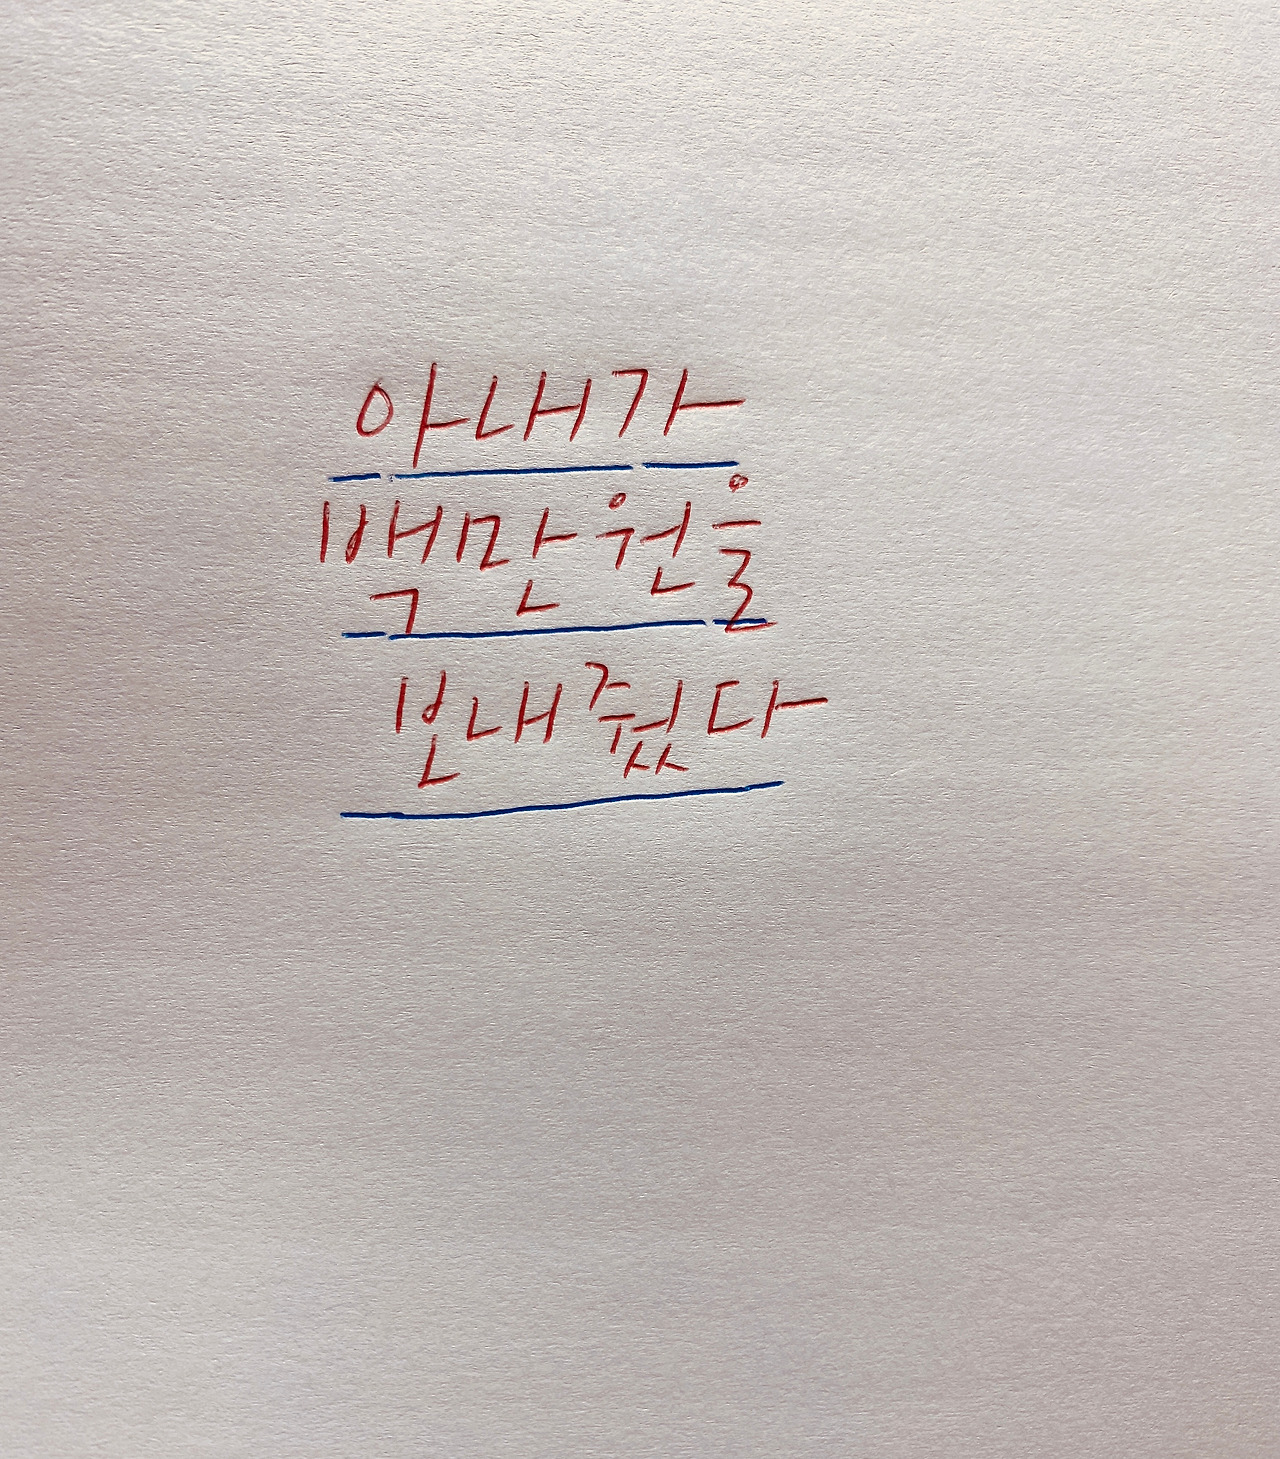 아내가
백만원을
보내줬다